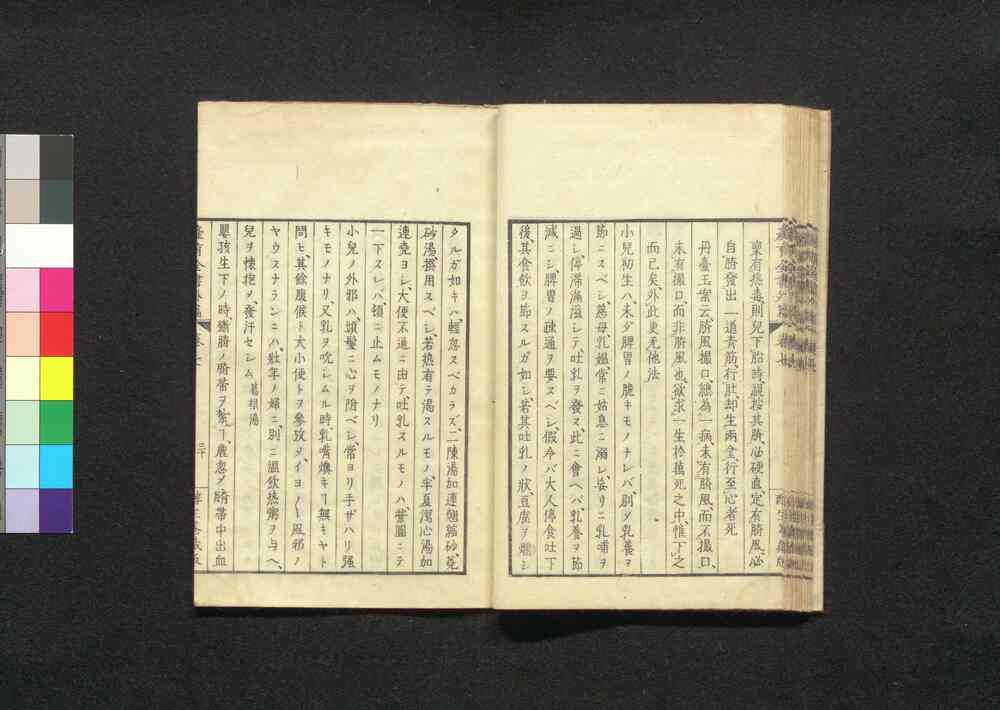 稟有熱毒則兒下胎時視按其臍必硬直定有臍風必
自臍發出一道青筋行肚却生兩坌行至心者死
丹臺玉案云臍風撮口總為一病未有臍風而不撮口
未有撮口而非臍風也欲求一生於萬死之中惟下之
而已矣外此更无他法
小兒初生ハ未ダ脾胃ノ脆キモノナレバ別ダ乳養ヲ
節ニスベシ慈母乳媼常ニ姑息ニ溺レ妄リニ乳哺ヲ
過シ停滞滿溢シテ吐乳ヲ發ス此ニ會ヘバ乳養ヲ節
減ニシ脾胃ノ疎通ヲ要スベシ假令バ大人傷食吐下
後其食飲ヲ節スルガ如シ若其吐乳ノ狀豆腐ヲ爛シ
タルガ如キハ輕忽スベカラズ二陳湯加連翹縮砂莬
砂湯撰用スベシ若熱有テ渴スルモノ半夏瀉心湯加
連堯ヨシ大便不通ニ由テ吐乳スルモノハ紫圓ニテ
一下スレバ頓ニ止ムモノナリ
小兒ノ外邪ハ頭髮ニ心ヲ附ベシ常ヨリ手ザハリ强
キモノナリ又乳ヲ吮シムル時乳嘴燠キヿ無キヤト
問ヒ其餘腹候ト大小便トヲ參攷ヲイヨ〱風邪ノ
ヤウスナランニハ壯年ノ婦ニ別ニ溫飲熱粥ヲ与ヘ
兒ヲ懷抱メ發汗セシム 葛根湯
嬰孩生下ノ時斷臍ノ臍帶ヲ紮ヿ麁忽メ臍帶中出血